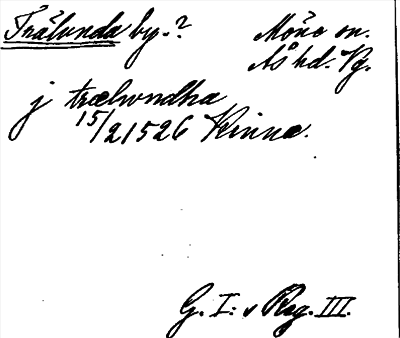 Trälunda by.? Möne sn.
Ås hd. Vg.
j trælwndha
15/2 1526 Kinna.
G. I: s Reg. III.